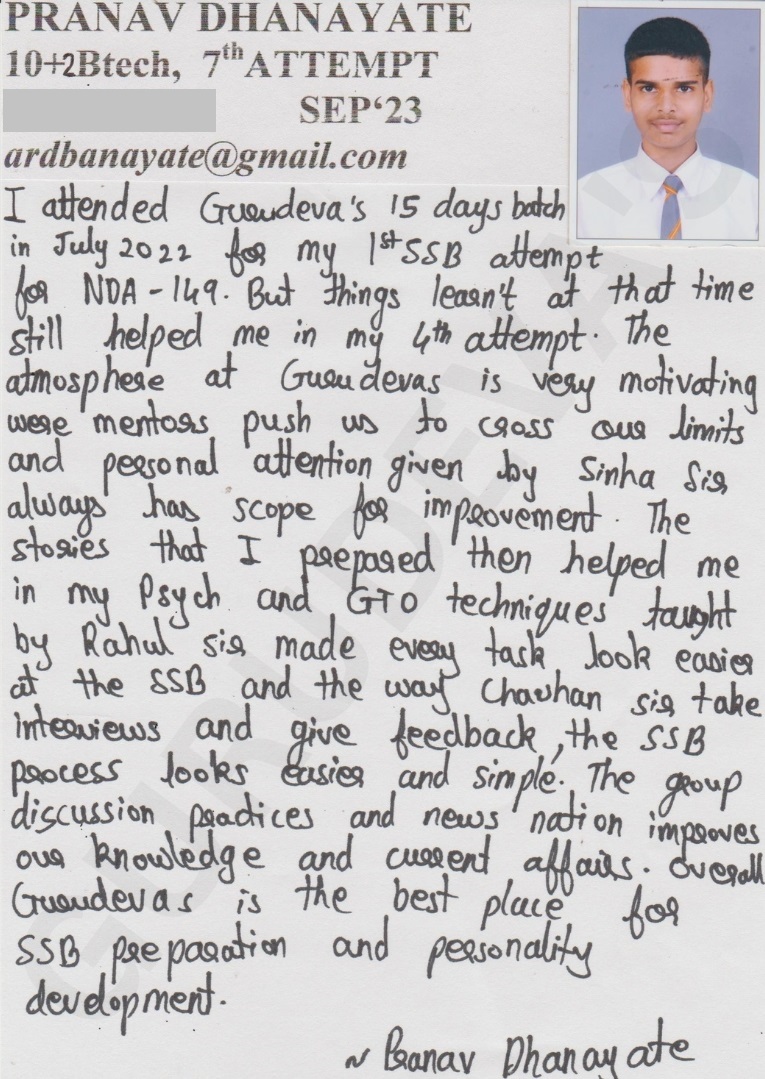 PRANAV DHANAYATE
10+2Btech, 7th ATTEMPT
SEP'23
ardbanayate@gmail.com
I attended Gurudeva's 15 days batch
in July 2022 for my 1st SSB attempt
for NDA - 149. But things learn't at that time
still helped me in my 4th attempt. The
atmosphere at Gurudevas is very motivating
were mentors push us to cross our limits
and personal attention given by Sinha Sir
always has scope for improvement. The
stories that I prepared then helped me
in my Psych and GTO techniques taught
by Rahul sir made every task look easier
at the SSB and the way Chauhan sir take
interviews and give feedback, the SSB
process looks easier and simple. The group
discussion practices and news nation improves
our knowledge and current affairs. Overall
Gurudevas is the best place for
SSB preparation and personality
development.
~ Pranav Dhanayate
GURUDEVA'S